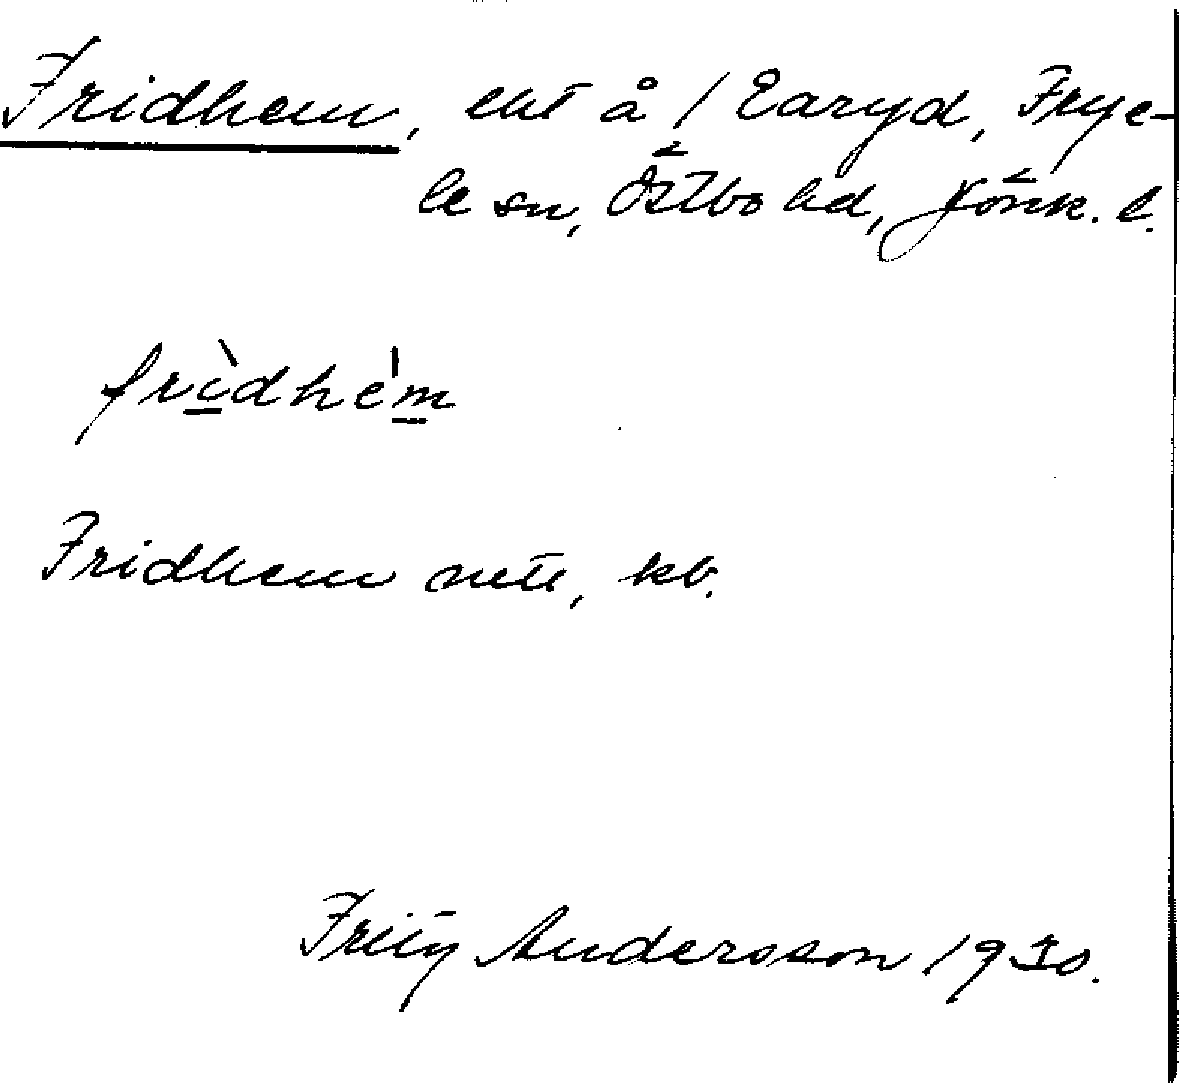 Fridhem, lht å 1 Earyd, Frye-
le sn, Östbo hd, Jönk. l.
fri̱dhem̱
Fridhem nett, kb.
Fritz Andersson 1930.